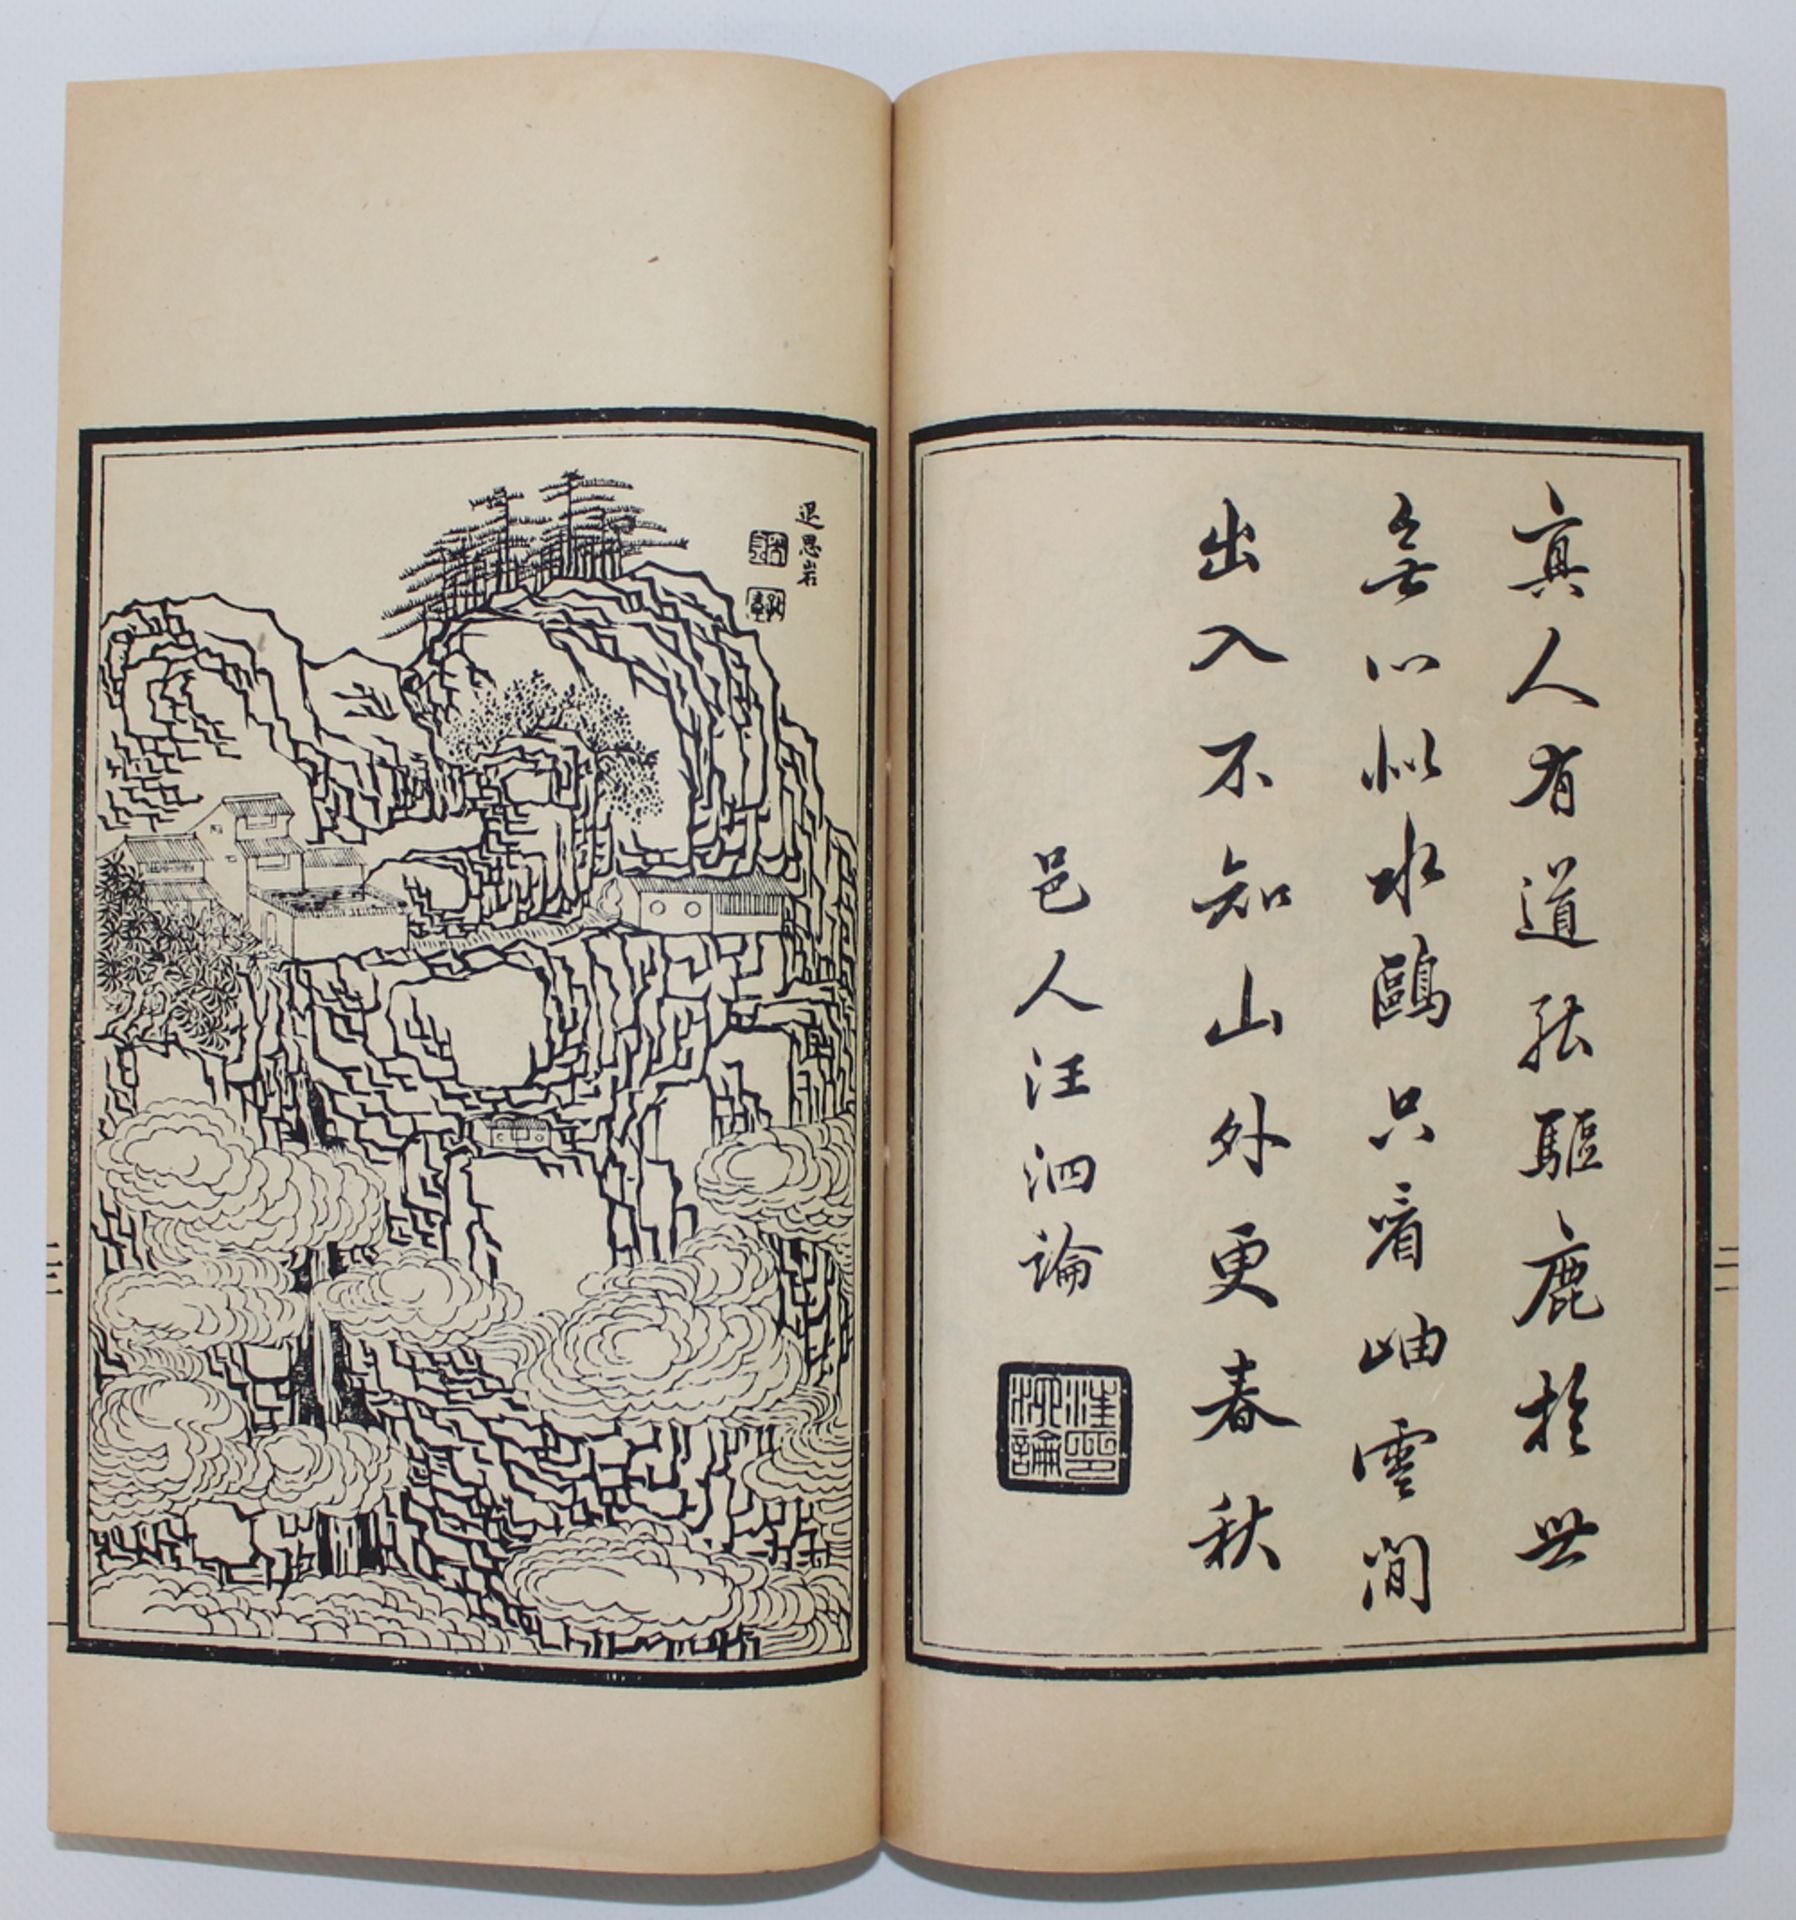 真人有道能驅鹿於世
無心似水鷗只看岫雲間
出入不知山外更春秋
邑人汪泗論
汪泗論
退思岩